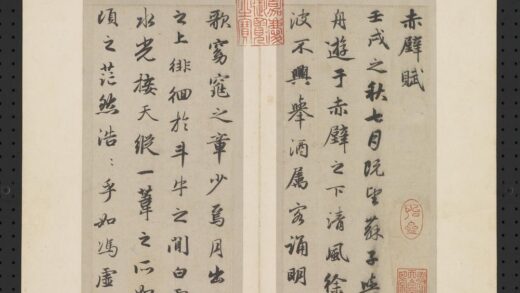 赤壁賦
壬戌之秋七月既望蘇子與
舟遊于赤壁之下清風徐
波不興舉酒属客誦明
歌窈窕之章少焉月出
之上徘徊於斗牛之間白
水光接天縱一葦之所如
頃之茫然浩〻乎如馮虛